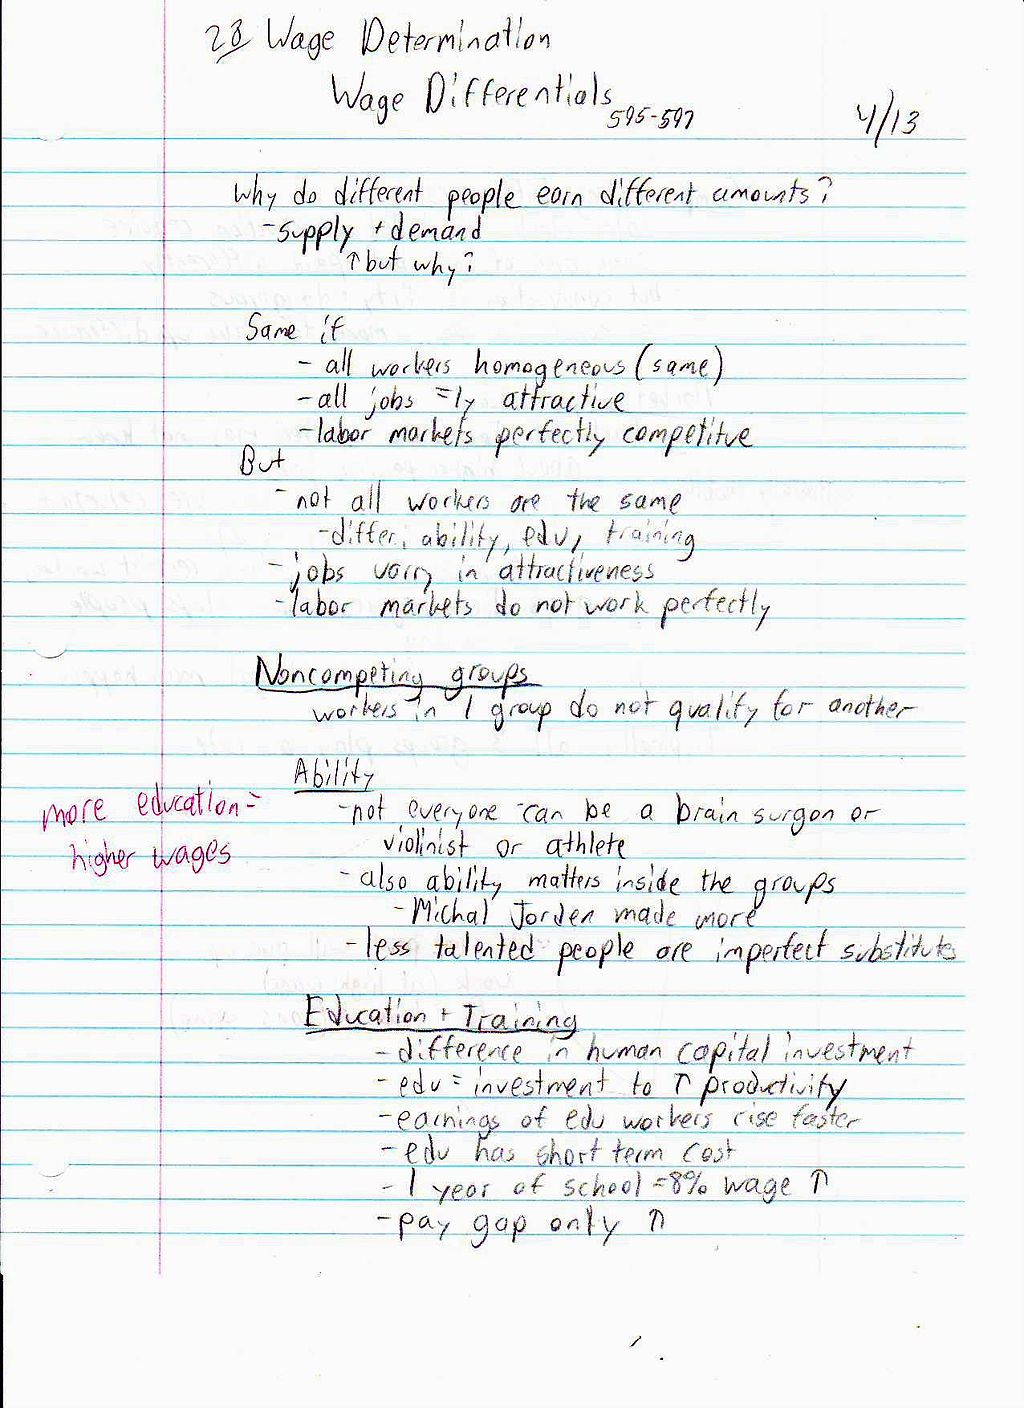 28 Wage Determination
Wage Differentials
595-597
4/13
Why do different people earn different amounts?
-supply + demand
↑ but why?
Same if
- all workers homogeneous (same)
- all jobs =ly attractive
- labor markets perfectly competitve
But
- not all workers are the same
- differ. ability, edu, training
- jobs vary in attractiveness
- labor markets do not work perfectly
Noncompeting groups
workers in 1 group do not qualify for another
Ability
more education =
higher wages
- not everyone can be a brain surgon or
violinist or athlete
- also ability matters inside the groups
- Michal Jorden made more
- less talented people are imperfect substitute
Education + Training
- difference in human capital investment
- edu = investment to ↑ productivity
- earnings of edu workers rise faster
- edu has short term cost
- 1 year of school = 8% wage ↑
- pay gap only ↑